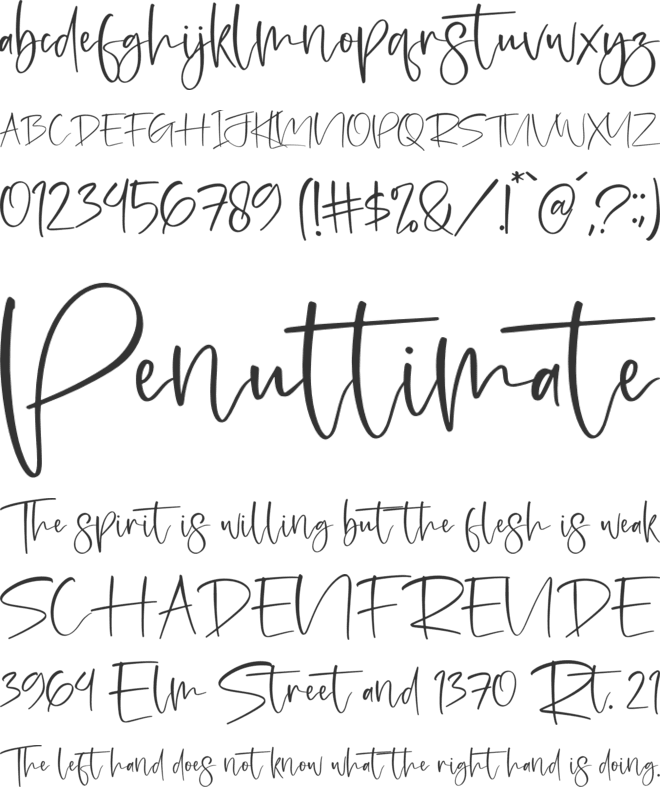 abcdefghijklmnopqrstuvwxyz
ABCDEFGHIJKLMNOPQRSTUVWXYZ
0123456789 (!#$%&/.|*`@´,?:;)
Penuttimate
The spirit is willing but the flesh is weak
SCHADENFREUDE
3964 Elm Street and 1370 Rt. 21
The left hand does not know what the right hand is doing.